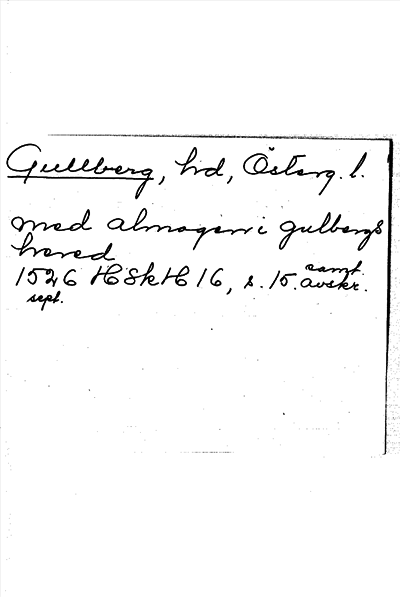 Gullberg, hd, Österg. l.
med almogen i gulbergs
hered
1526 HSkH 16, s. 15. samt. avskr.
sept.